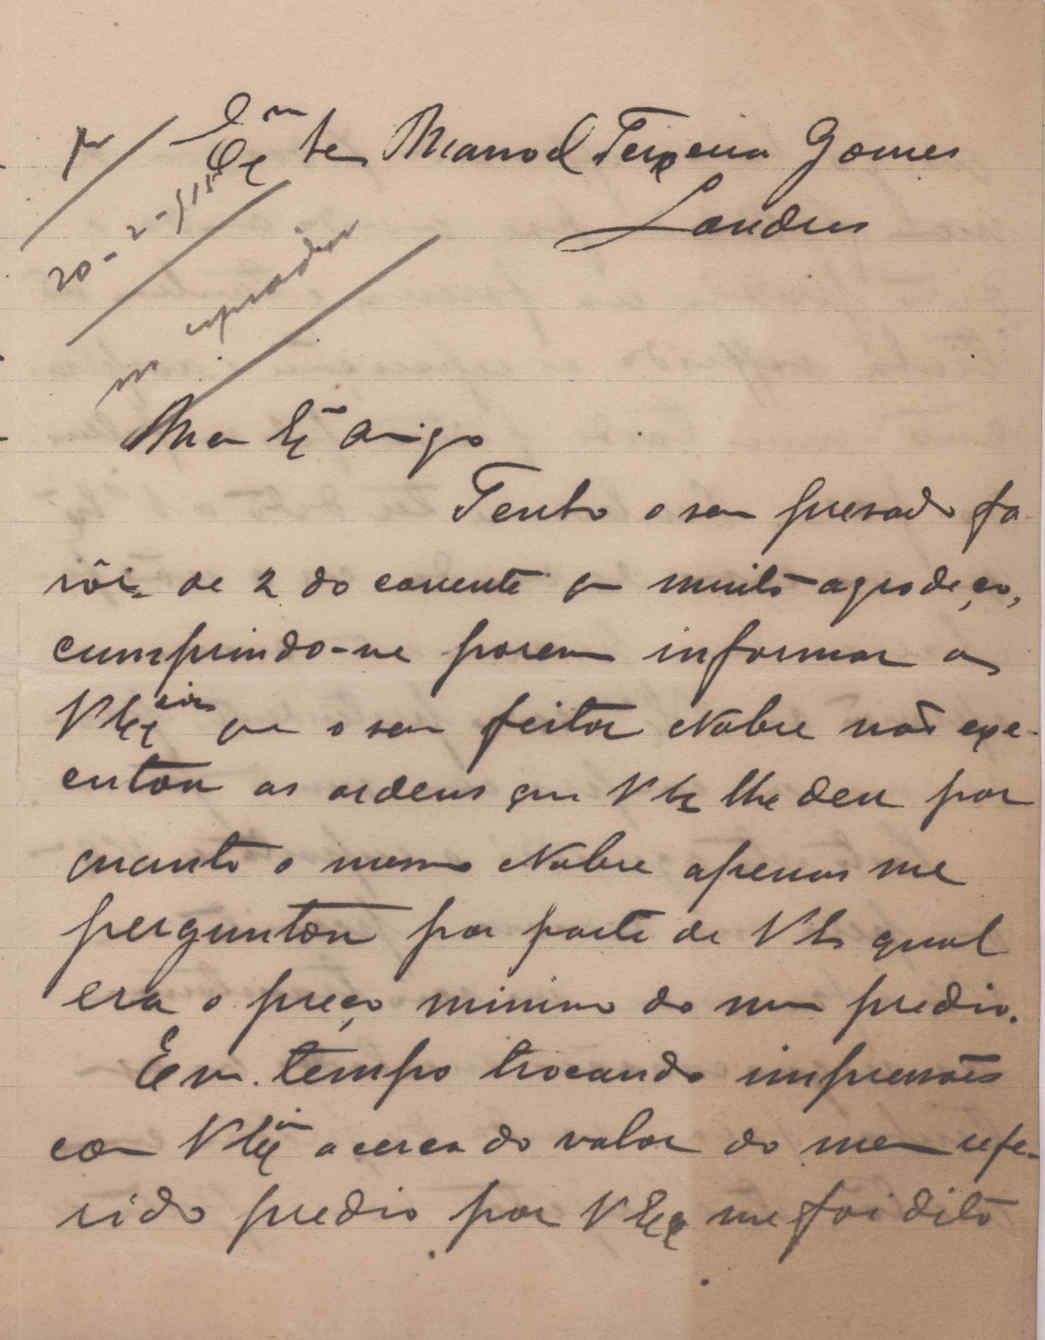 Exmo Snr Manoel Teixeira Gomes
Londres
20-2-915
no copiador
Meu Exmo Amigo
Tenho o seu presado fa
vôr de 2 do corrente q muito agradeço,
cumprindo-me porem informar a
V Excia que o seu feitor Nobre não exe-
cutou as ordens que V Ex lhe deu por
quanto o mesmo Nobre apenas me
perguntou por parte de V Ex qual
era o preço minimo do meu predio.
Em tempo trocando impressões
com V Exa acerca do valor do meu refe-
rido predio por V Exa me foi dito